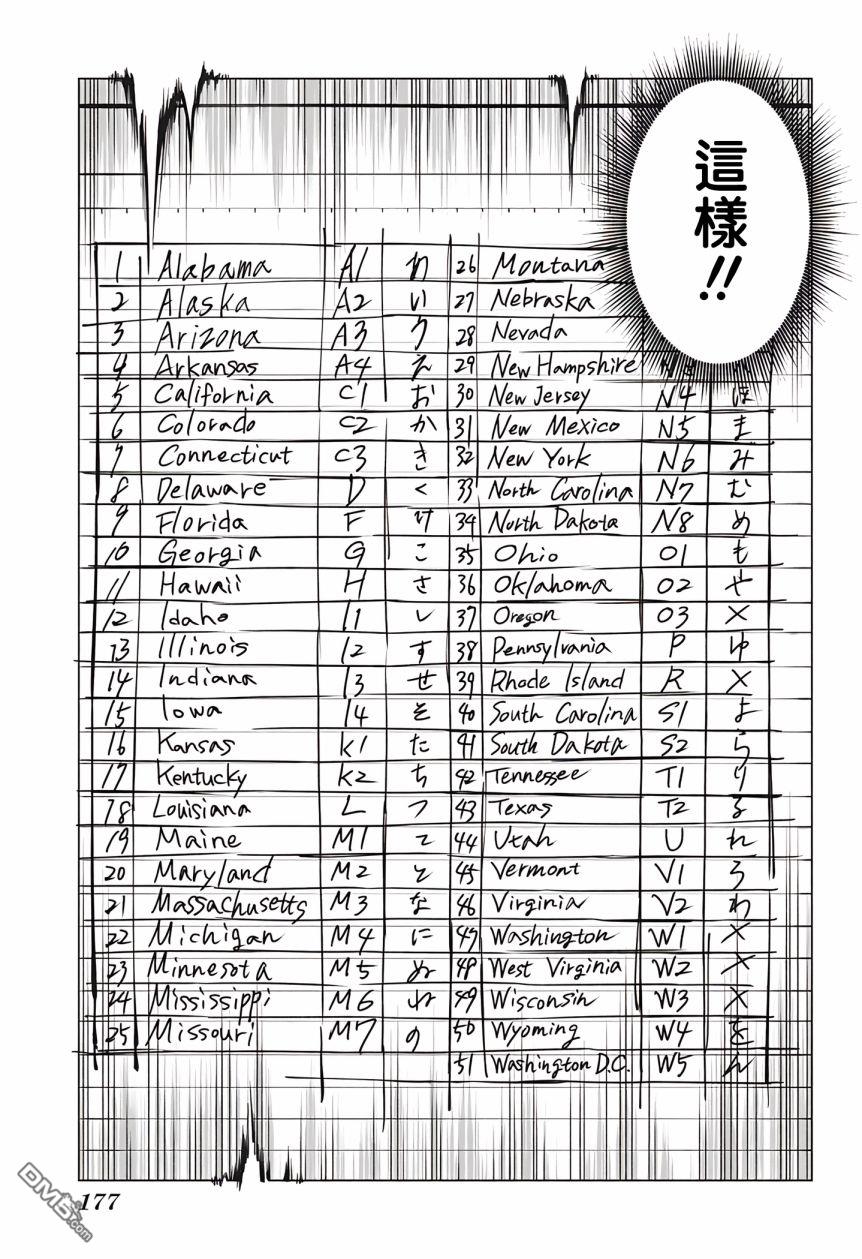 這樣!!
1 Alabama A1 わ
2 Alaska A2 い
3 Arizona A3 う
4 Arkansas A4 え
5 California C1 お
6 Colorado C2 か
7 Connecticut C3 き
8 Delaware D く
9 Florida F け
10 Georgia G こ
11 Hawaii H さ
12 Idaho I1 し
13 Illinois I2 す
14 Indiana I3 せ
15 Iowa I4 そ
16 Kansas K1 た
17 Kentucky K2 ち
18 Louisiana L つ
19 Maine M1 て
20 Maryland M2 と
21 Massachusetts M3 な
22 Michigan M4 に
23 Minnesota M5 ぬ
24 Mississippi M6 ね
25 Missouri M7 の
26 Montana
27 Nebraska
28 Nevada
29 New Hampshire
30 New Jersey N4 ほ
31 New Mexico N5 ま
32 New York N6 み
33 North Carolina N7 む
34 North Dakota N8 め
35 Ohio O1 も
36 Oklahoma O2 や
37 Oregon O3 X
38 Pennsylvania P ゆ
39 Rhode Island R X
40 South Carolina S1 よ
41 South Dakota S2 ら
42 Tennessee T1 り
43 Texas T2 る
44 Utah U れ
45 Vermont V1 ろ
46 Virginia V2 わ
47 Washington W1 X
48 West Virginia W2 X
49 Wisconsin W3 X
50 Wyoming W4 を
51 Washington D.C. W5 ん
177
DM5.com